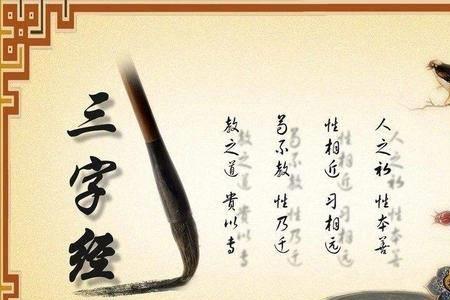 三字经
人之初 性本善
性相近 习相远
苟不教 性乃迁
教之道 貴以专